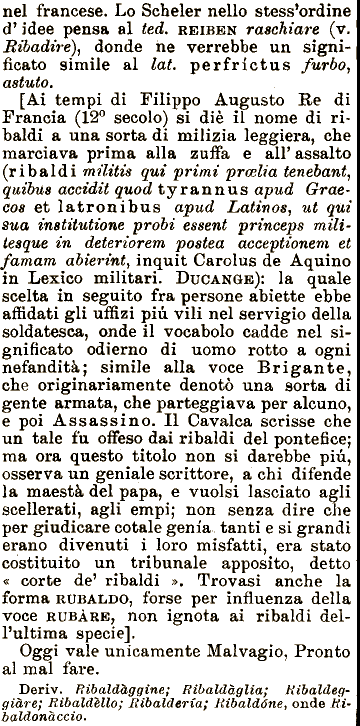 nel francese. Lo Scheler nello stess'ordine
d'idee pensa al ted. REIBEN raschiare (v.
Ribadire), donde ne verrebbe un signi-
ficato simile al lat. perfríctus furbo,
astuto.
[Ai tempi di Filippo Augusto Re di
Francia (12º secolo) si diè il nome di ri-
baldi a una sorta di milizia leggiera, che
marciava prima alla zuffa e all'assalto
(ribaldi militis qui primi prœlia tenebant,
quibus accidit quod tyrannus apud Grae-
cos et latronibus apud Latinos, ut qui
sua institutione probi essent princeps mili-
tesque in deteriorem postea acceptionem et
famam abierint, inquit Carolus de Aquino
in Lexico militari. DUCANGE): la quale
scelta in seguito fra persone abiette ebbe
affidati gli uffizi piú vili nel servigio della
soldatesca, onde il vocabolo cadde nel si-
gnificato odierno di uomo rotto a ogni
nefandità; simile alla voce Brigante,
che originariamente denotò una sorta di
gente armata, che parteggiava per alcuno,
e poi Assassino. Il Cavalca scrisse che
un tale fu offeso dai ribaldi del pontefice;
ma ora questo titolo non si darebbe piú,
osserva un geniale scrittore, a chi difende
la maestà del papa, e vuolsi lasciato agli
scellerati, agli empi; non senza dire che
per giudicare cotale genía tanti e si grandi
erano divenuti i loro misfatti, era stato
costituito un tribunale apposito, detto
« corte de' ribaldi ». Trovasi anche la
forma RUBALDO, forse per influenza della
voce RUBÀRE, non ignota ai ribaldi del-
l'ultima specie].
Oggi vale unicamente Malvagio, Pronto
al mal fare.
Deriv. Ribaldàggine; Ribaldàglia; Ribaldeg-
giàre; Ribaldèllo; Ribaldería; Ribaldóne, onde Ri-
baldonàccio.